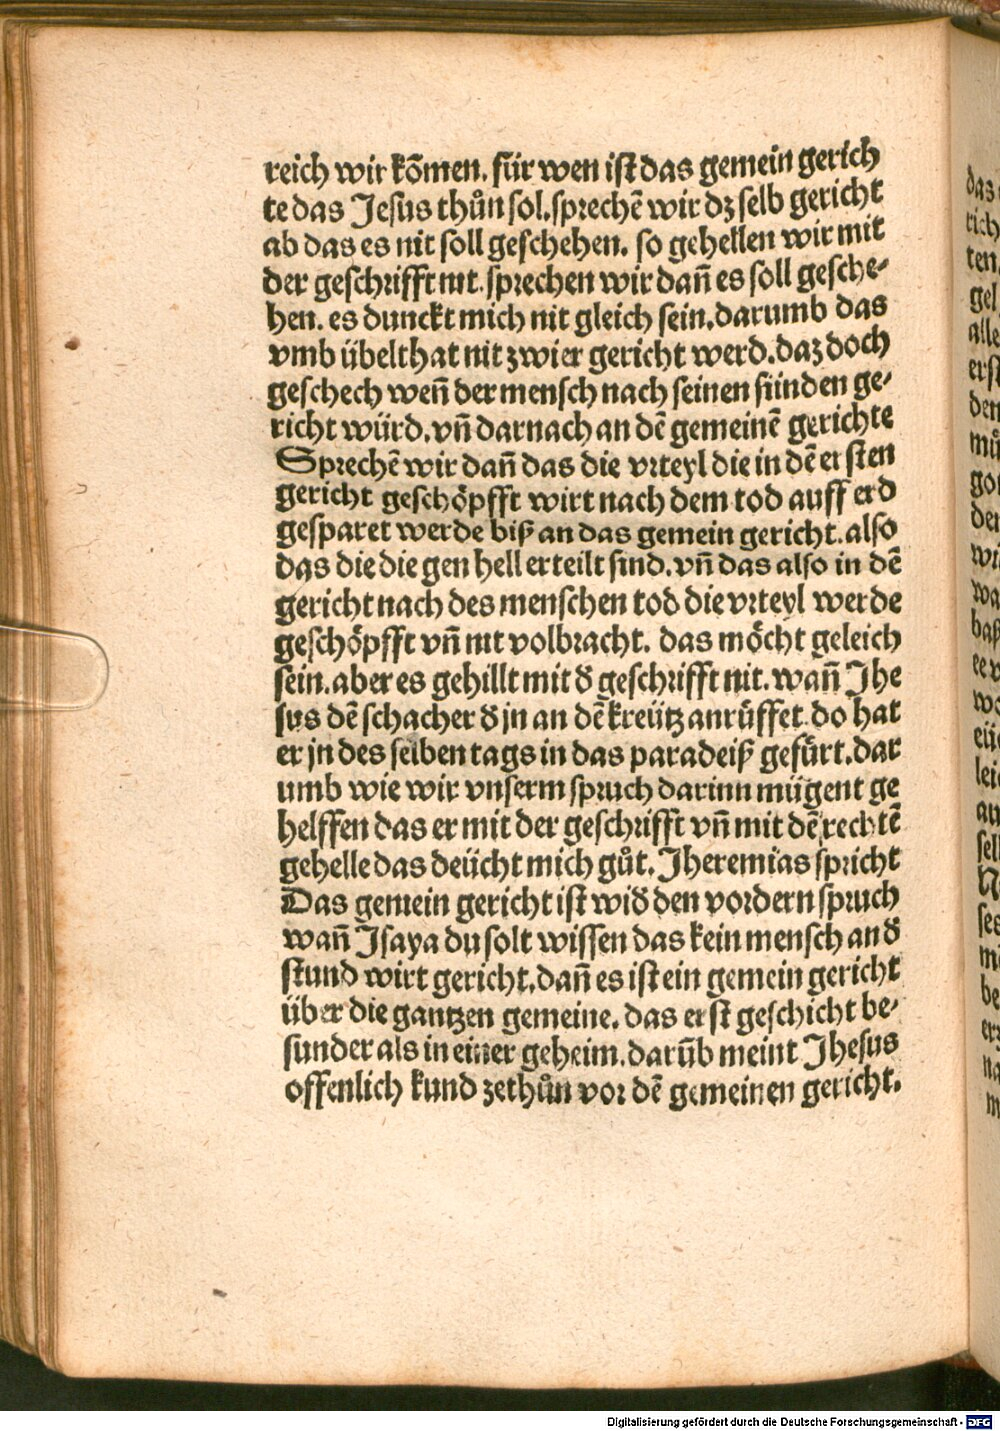 reich wir kōmen. für wen ist das gemein gerich
te das Jesus thůn sol. sprechē wir dz selb gericht
ab das es nit soll geschehen. so gehellen wir mit
der geschrifft nit. sprechen wir dañ es soll gesche⸗
hen. es dunckt mich nit gleich sein. darumb das
vmb übelthat nit zwier gericht werd. daz doch
geschech weñ der mensch nach seinen sünden ge⸗
richt würd. vñ darnach an dē gemeinē gerichte
Sprechē wir dañ das die vrteyl die in dē ersten
gericht geschöpfft wirt nach dem tod auff erd
gesparet werde biß an das gemein gericht. also
das die die gen hell erteilt sind. vñ das also in dē
gericht nach des menschen tod die vrteyl werde
geschöpfft vñ nit volbracht. das möcht geleich
sein. aber es gehillt mit d̕ geschrifft nit. wañ Jhe
sus dē schacher d̕ jn an dē kreütz anrüffet. do hat
er jn des selben tags in das paradeiß gefürt. dar
umb wie wir vnserm spruch darinn mügent ge
helffen das er mit der geschrifft vñ mit dē rechtē
gehelle das deücht mich gůt. Jheremias spricht
Das gemein gericht ist wid̕ den vordern spruch
wañ Jsaya du solt wissen das kein mensch an d̕
stund wirt gericht. dañ es ist ein gemein gericht
über die gantzen gemeine. das erst geschicht be⸗
sunder als in einer geheim. darūb meint Jhesus
offenlich kund zethůn vor dē gemeinen gericht.
Digitalisierung gefördert durch die Deutsche Forschungsgemeinschaft - DFG